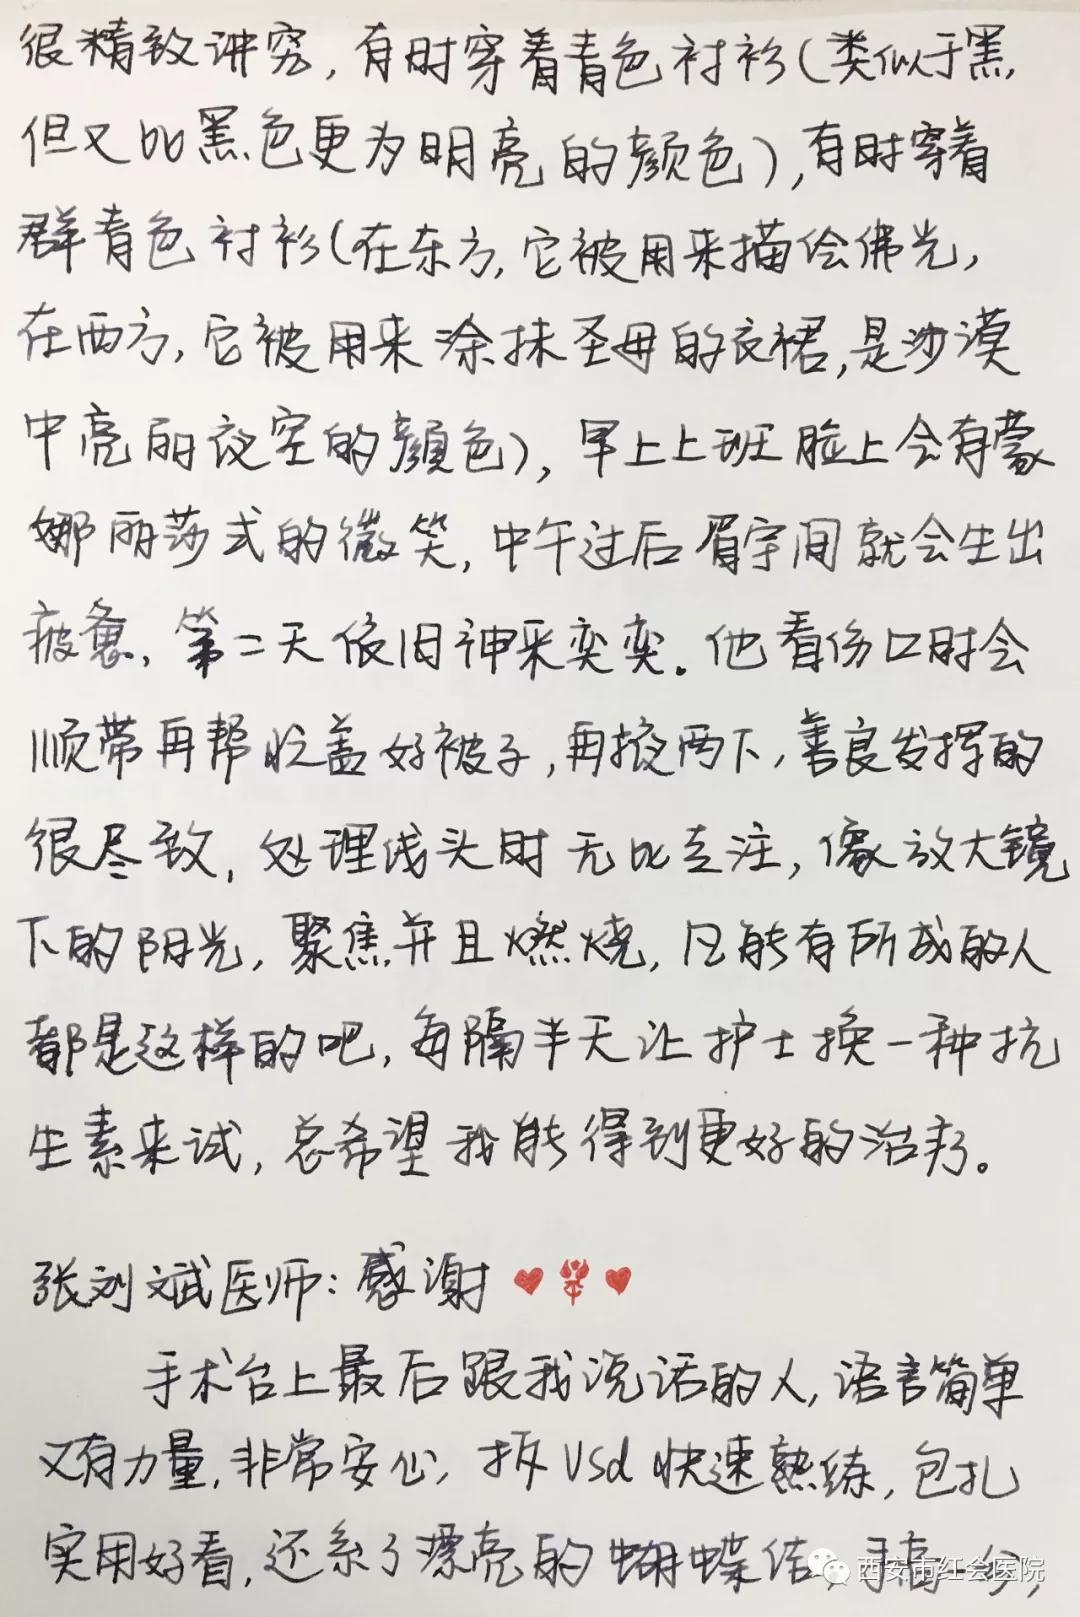 很精致讲究，有时穿着青色衬衫(类似于黑，
但又比黑色更为明亮的颜色)，有时穿着
群青色衬衫(在东方，它被用来描绘佛光，
在西方，它被用来涂抹圣母的衣裙，是沙漠
中亮丽夜空的颜色)，早上上班脸上会有蒙
娜丽莎式的微笑，中午过后眉宇间就会生出
疲惫，第二天依旧神采奕奕。他看伤口时会
顺带再帮忙盖好被子，再掖两下，善良发挥的
很尽致，处理线头时无比专注，像放大镜
下的阳光，聚焦并且燃烧，凡能有所成的人
都是这样的吧，每隔半天让护士换一种抗
生素来试，总希望我能得到更好的治疗。
张刘斌医师：感谢
手术台上最后跟我说话的人，语言简单
又有力量，非常安心，拆Vsd快速熟练，包扎
实用好看，还系了漂亮的蝴蝶结，手
西安市红会医院